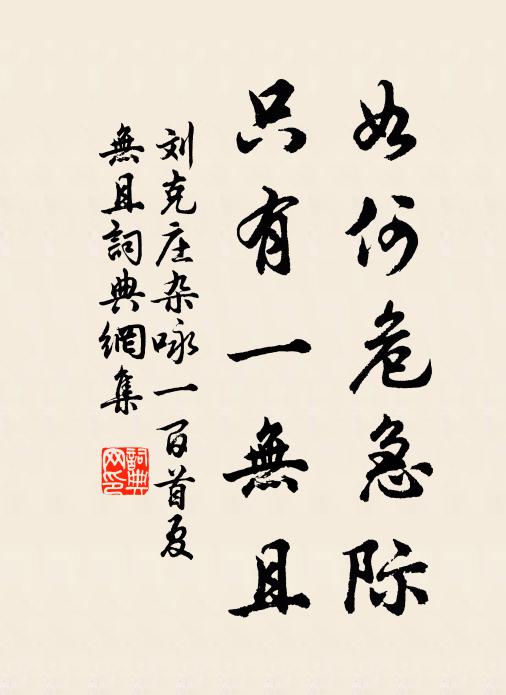 如何危急際
只有一無且
刘克庄杂咏一百首夏
無且詞典網集
詞典
网印